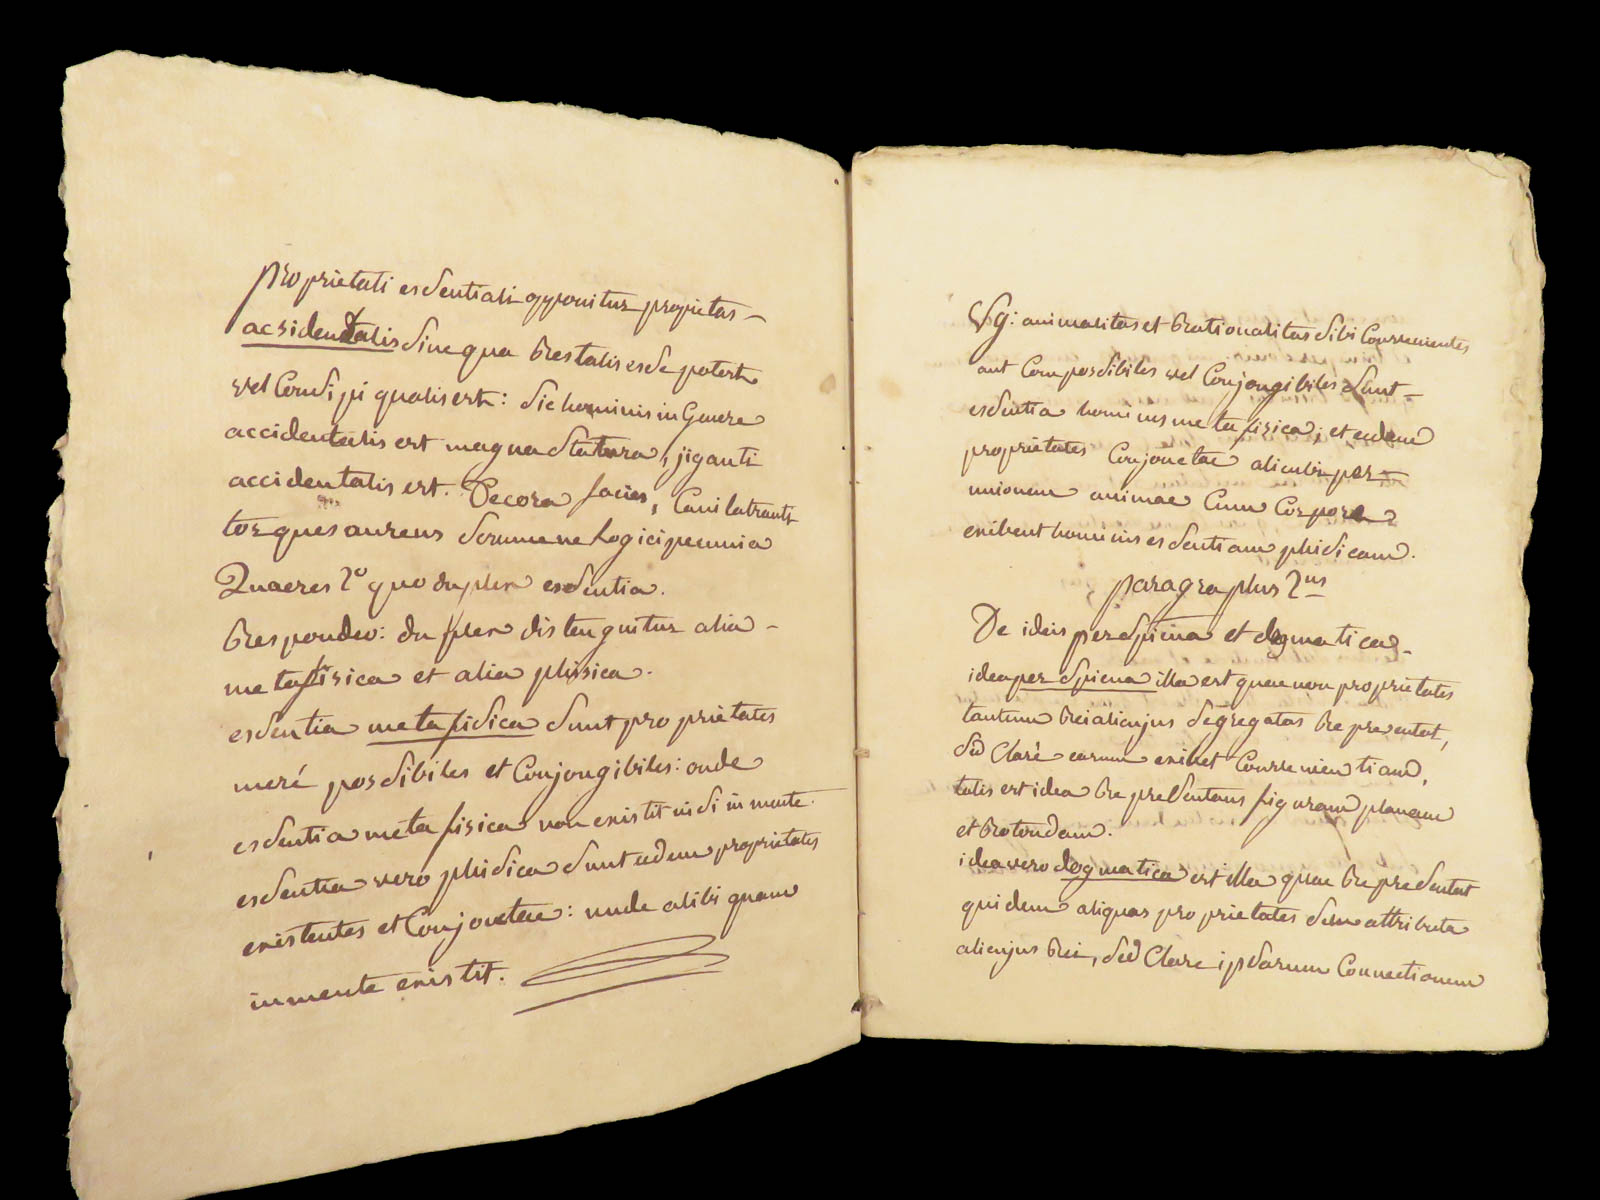 proprietati essentiali opponitur proprietas
accidentalis sine qua res talis esse potest
vel Concipi qualis est: sic hominis in Genere
accidentalis est magna statura, jiganti
accidentalis est. Decora facies, Cani latranti
torques aureus logici pecunia
Quaeres 2º quo duplex essentia.
respondeo: duplex distenguitur alia
metafisica et alia phisica.
essentia metafisica sunt proprietates
meré possibiles et Conjongibiles: onde
essentia metafisica non existit nisi in mente.
essentia vero phisica sunt eedem proprietates
existentes et Conjonctae: unde alibi quam
in mente existit.
Vg: animalitas et rationalitas sibi Convenientes
aut Compossibiles vel Conjongibiles sunt
essentia hominis metafisica; et eedem
proprietates Conjonctae alicubi per
unionem animae Cum Corpore
exibent hominis essentiam phisicam.
paragraphus 2us
De ideis perspicua et dogmatica
idea perspicua illa est quae non proprietates
tantum rei alicujus segregatas representat,
sed Claré earum exibet Convenientiam,
talis est idea representans figuram planam
et rotondam.
idea vero dogmatica est illa quae representat
quidem aliquas proprietates seu attributa
alicujus rei, sed Clare ipsarum Connectionem